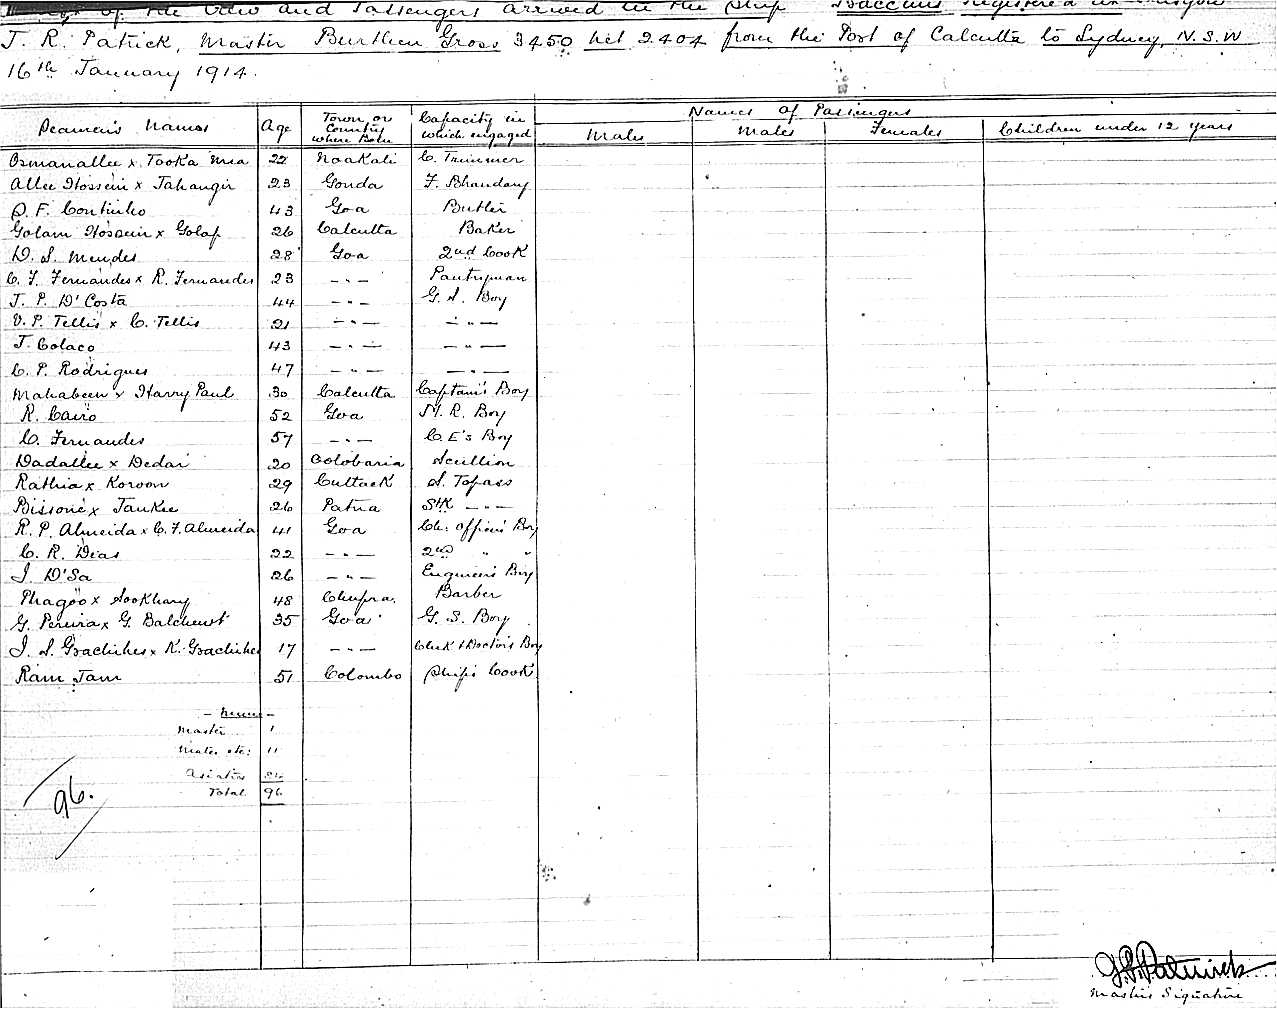 of the Crew and Passengers arrived in the Ship Bacchus Registered
J. R. Patrick, Master Burthen Gross 3450 net 2404 from the Port of Calcutta to Sydney, N.S.W
16th January 1914.
Names of Passengers
Seamen's Names Age Town or Country where Born Capacity in which engaged Males Males Females Children under 12 years
Osmanallee x Tooka Mia 22 Noakali C. Trimmer
Allee Hossein x Jahangir 23 Gonda F. Bhandary
D. F. Continho 43 Goa Butler
Golam Hossein x Golap 26 Calcutta Baker
D. S. Mendes 28 Goa 2nd Cook
C. F. Fernandes x R. Fernandes 23 - " - Pantryman
J. P. D'Costa 44 - " - G. S. Boy
V. P. Tellis x C. Tellis 21 - " - - " -
J. Colaco 43 - " - - " -
C. P. Rodrigues 47 - " - - " -
Mahabeen x Harry Paul 30 Calcutta Captain's Boy
R. Cairo 52 Goa M. R. Boy
C. Fernandes 57 - " - C. E's Boy
Dadallee x Dedar 20 Colobaria Scullion
Rathia x Koroon 29 Cuttack S. Topass
Bissone x Jankee 26 Patna - " -
R. P. Almeida x C. F. Almeida 41 Goa Ch: Officers Boy
C. R. Dias 22 - " - 2nd " "
J. D'Sa 26 - " - Engineers Boy
Phagoo x Sookhary 48 Chupra. Barber
G. Pereira x G. 35 Goa G. S. Boy
J. S. x K. 17 - " - Clerk & Doctor's Boy
Ram Jam 51 Colombo Ship's Cook
Master 1
Mates etc: 11
Asiatics 84
Total 96
96.
J. R. Patrick
Master's Signature